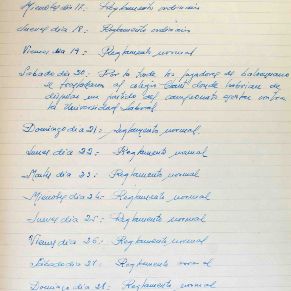 Miércoles día 17.- Reglamento ordinario
Jueves día 18.- Reglamento ordinario
Viernes día 19.- Reglamento normal
Sábado día 20.- Por la tarde los jugadores de balonmano
se trasladaron al colegio donde habrían de
disputar un partido del campeonato contra
la Universidad Laboral
Domingo día 21.- Reglamento normal
Lunes día 22.- Reglamento normal
Martes día 23.- Reglamento normal
Miércoles día 24.- Reglamento normal
Jueves día 25.- Reglamento normal
Viernes día 26.- Reglamento normal
Sábado día 27.- Reglamento normal
Domingo día 28.- Reglamento normal